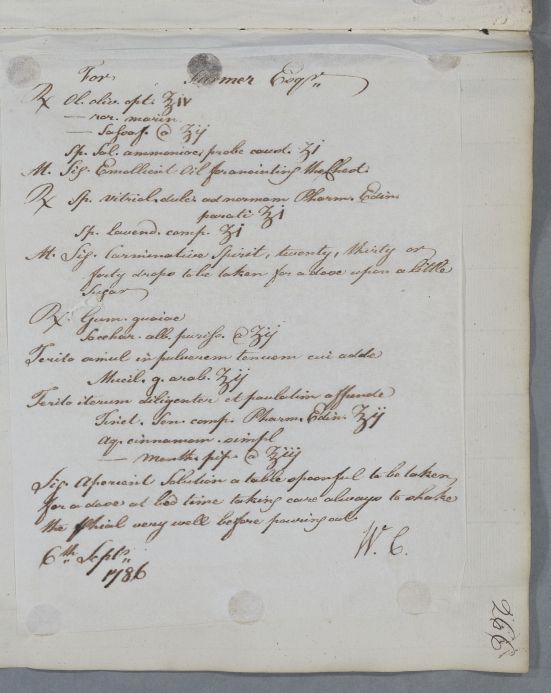 For Farmer Esqr.
℞ Ol. oliv. opt. ℥iv
— ror. marin.
— Sassaf. @ ʒij
Sp. Sal. ammoniac. probe caust. ʒi
M. Sig. Emollient Oil for anointing the Chest.
℞ Sp. vitriol. dulc. ad normam Pharm. Edin.
parati ℥i
Sp. lavend. comp. ℥i
M. Sig. Carminative Spirit, twenty, thirty or
forty drops to be taken for a dose upon a little
Sugar
℞ Gum. guaiac
Sacchar. alb. puriss. @ ʒij
Terito simul in pulverem tenuem cui adde
Mucil. g. arab. ʒij
Terito iterum diligenter et paulatim affunde
Tinct. Sen. comp. Pharm. Edin. ℥ij
Aq. cinnamom. simpl
— menth. pip. @ ℥iij
Sig. Aperient Solution a table spoonful to be taken
for a dose at bed time taking care always to shake
the Phial very well before pouring out.
W. C.
6th Septr.
1786
266